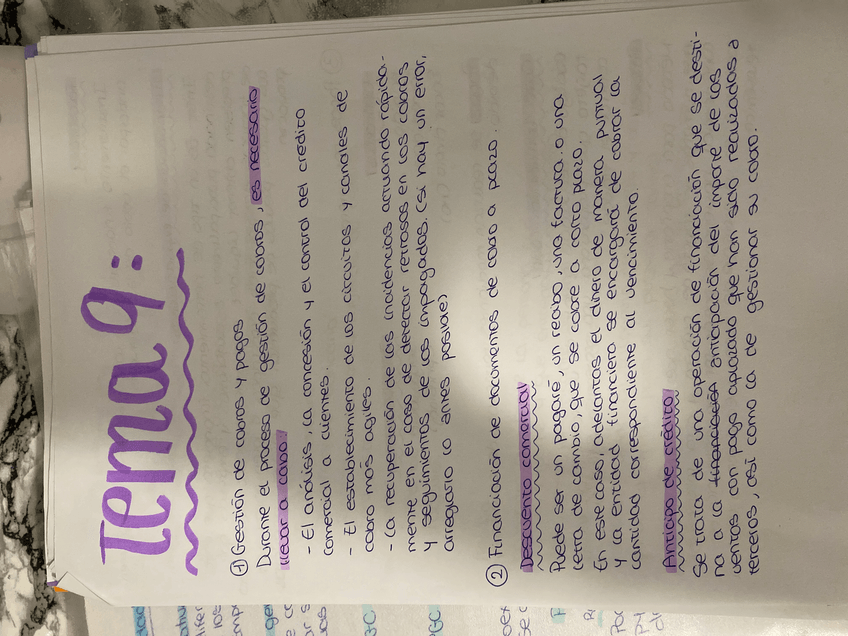 Tema 9:
① Gestión de cobros y pagos
Durante el proceso de gestión de cobros, es necesario
llevar a cabo:
- El análisis, la concesión y el control del crédito
comercial a clientes.
- El establecimiento de los circuitos y canales de
cobro más agiles.
- La recuperación de las incidencias actuando rápida-
mente en el caso de detectar retrasos en los cobros
y seguimientos de los impagados. (si hay un error,
arreglarlo lo antes posible)
② Financiación de documentos de cobro a plazo.
Descuento comercial
Puede ser un pagaré, un recibo, una factura o una
letra de cambio, que se cobre a corto plazo.
En este caso, adelantas el dinero de manera puntual
y la entidad financiera se encargará de cobrar la
cantidad correspondiente al vencimiento.
Anticipo de crédito
Se trata de una operación de financiación que se desti-
na a la anticipación del importe de las
ventas con pago aplazado que han sido realizados a
terceros, así como la de gestionar su cobro.